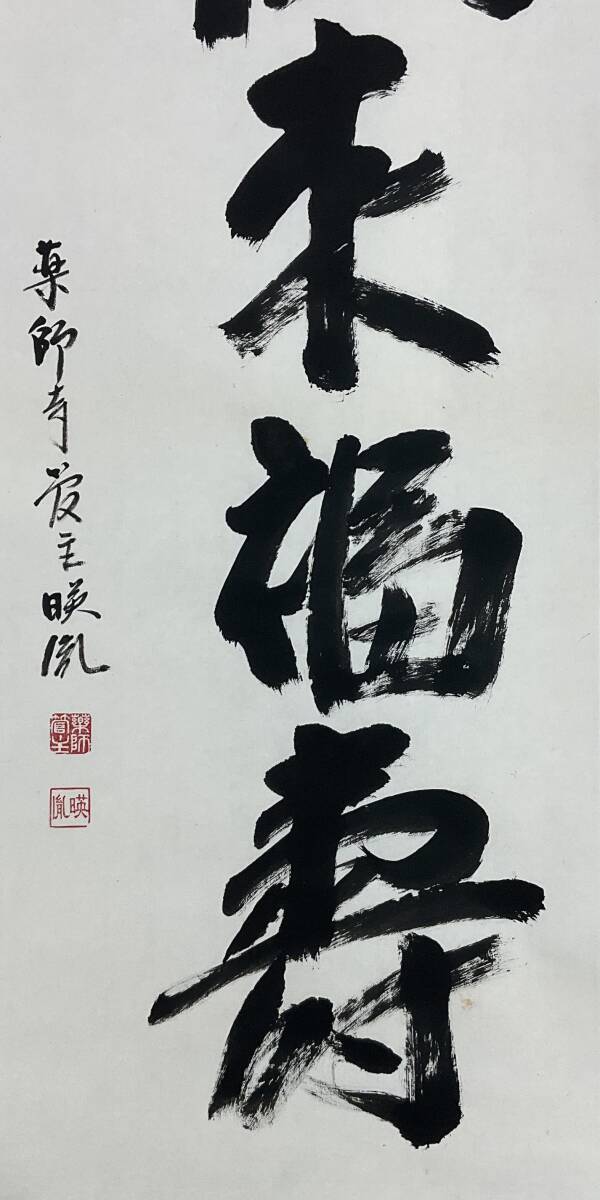 未福寿
薬師寺管主暎胤
薬師
管主
暎
胤